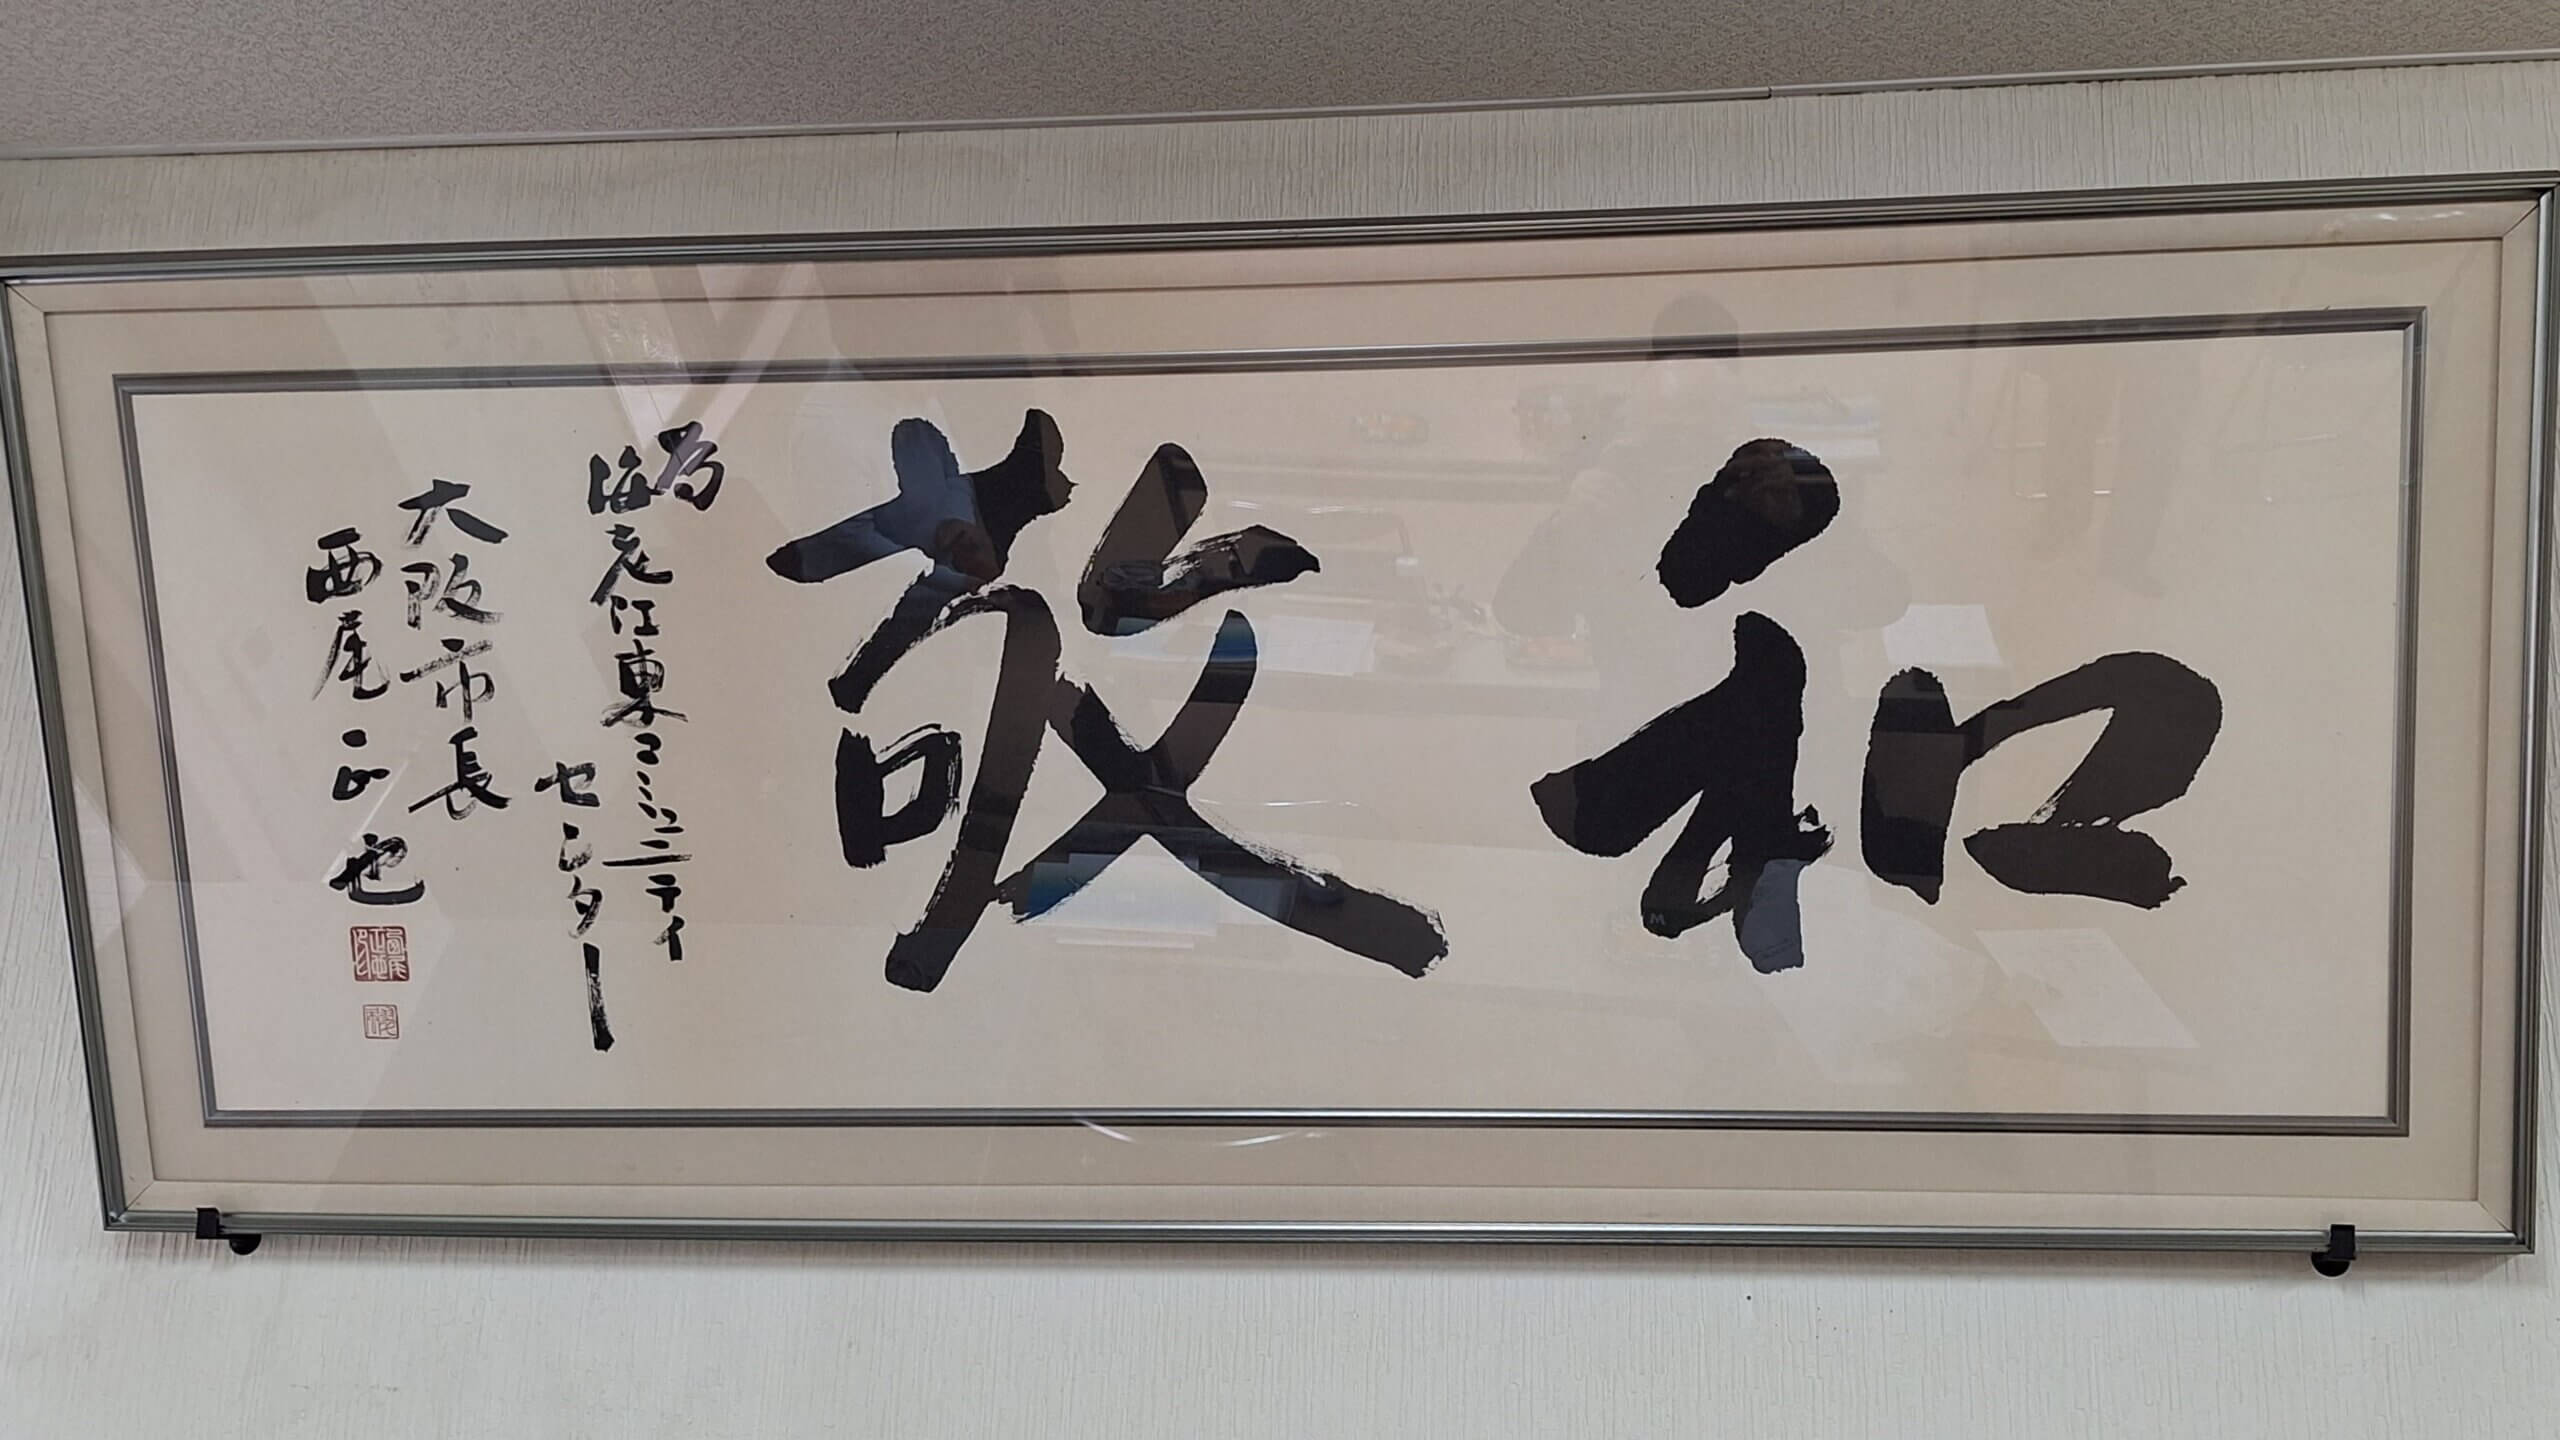 和敬
為
海老江東コミュニティ
センター
大阪市長
西尾正也